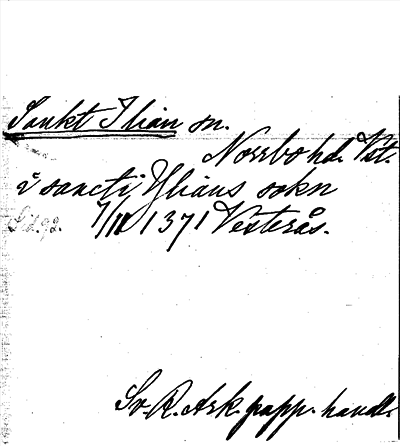 Sankt Ilian sn.
Norrbo hd. Vst.
i sancti Ylians sokn
7/11 1371 Vesterås.
Sv. R. Ark. papp. handl.